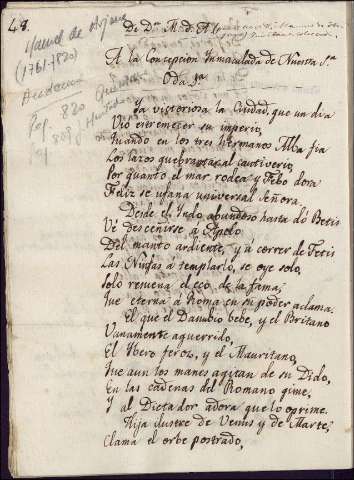 48.
Manuel de Arjona
(1761-1820)
Academia
Pag. 820
Pag. 809
De Dn. M. d. A.
A la Concepcion Inmaculada de Nuestra Sra.
Oda 3ª
Ya victoriosa la Ciudad, que un dia
Vió estremecer su imperio,
Cuando en los tres hermanos Alba fia
Los lazos quebrantar al cautiverio,
Por quanto el mar rodea y Febo dora
Feliz se ufana universal Señora.
Desde el Indo abundoso hasta dó Betis
Vé desceñirse a Apolo
Del manto ardiente, y á correr de Tetis
Las Ninfas á templarlo, se oye solo,
Solo resuena el eco de la fama,
Que eterna á Roma en su poder aclama.
El que el Danubio bebe, y el Britano
Vanamente aguerrido,
El Ybero feroz, y el Mauritano,
Que aun los manes agitan de su Dido,
En las cadenas del Romano gime,
Y al Dictador adora que lo oprime.
Hija ilustre de Venus y de Marte,
Clama el orbe postrado,